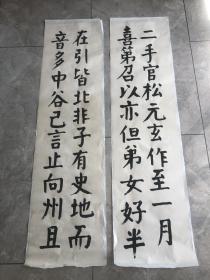 二手官松元玄作至一月
喜第召以亦但弟女好半
在引皆北非子有史地而
音多中谷已言止向州且